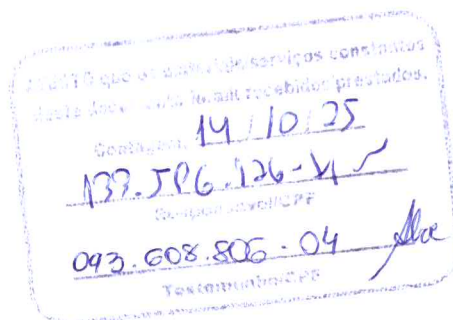 ATESTO que os materiais/serviços constantes
deste documento foram recebidos/prestados.
Contagem, 14 / 10 / 25
Responsável/CPF
093.608.806-04
Testemunha/CPF